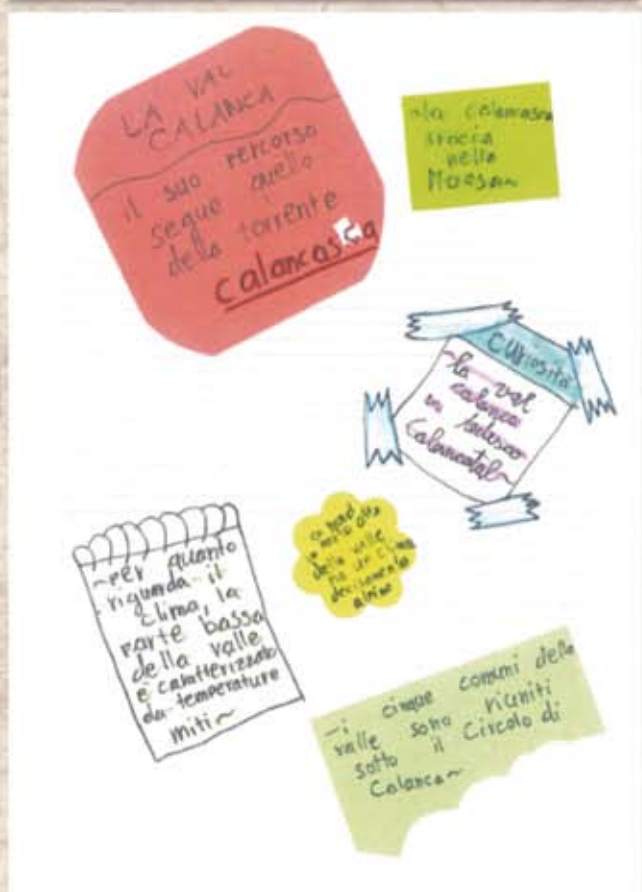 LA VAL
CALANCA
il suo percorso
segue quello
della torrente
calancasca
~la calancasca
sfocia
nella
Moesa~
curiosità
~la val
calanca
in tedesco
Calancatal~
~per quanto
riguarda il
clima, la
parte bassa
della valle
è caratterizzata
da temperature
miti~
della valle
ha un clima
decisamente
alpino
~i cinque comuni della
valle sono riuniti
sotto il Circolo di
Calanca~